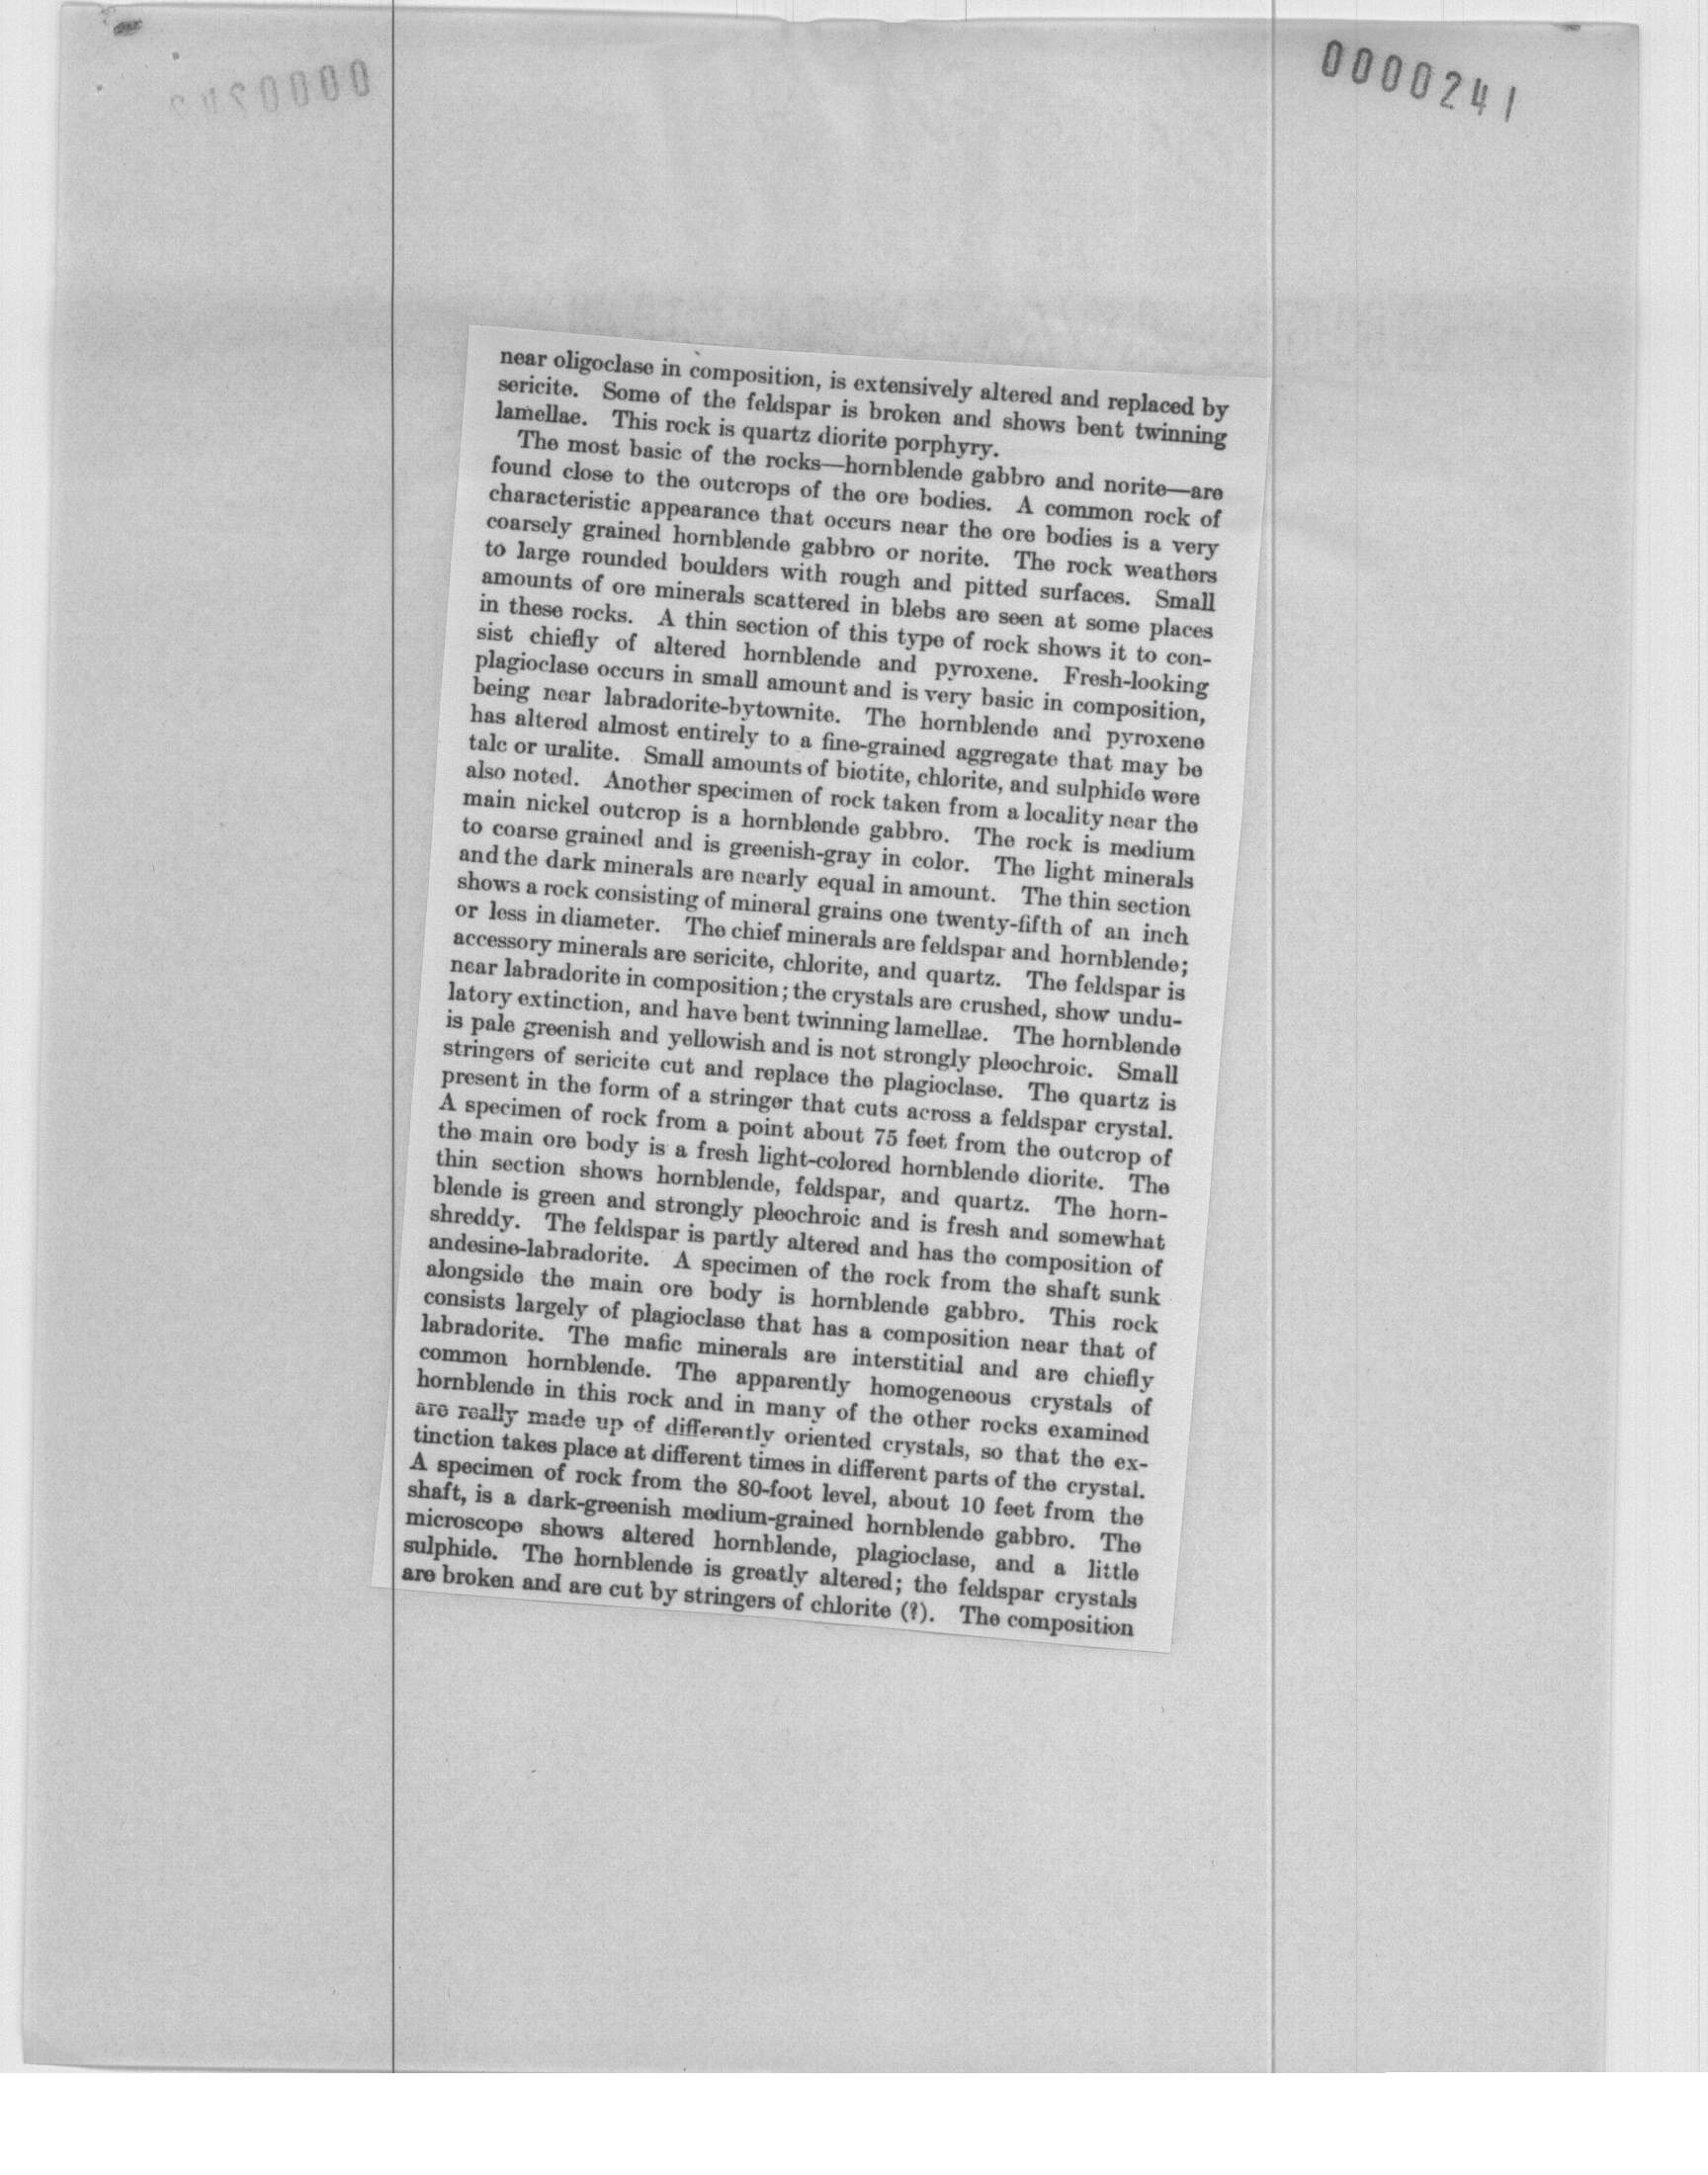 0000241
near oligoclase in composition, is extensively altered and replaced by
sericite. Some of the feldspar is broken and shows bent twinning
lamellae. This rock is quartz diorite porphyry.
The most basic of the rocks—hornblende gabbro and norite—are
found close to the outcrops of the ore bodies. A common rock of
characteristic appearance that occurs near the ore bodies is a very
coarsely grained hornblende gabbro or norite. The rock weathers
to large rounded boulders with rough and pitted surfaces. Small
amounts of ore minerals scattered in blebs are seen at some places
in these rocks. A thin section of this type of rock shows it to con-
sist chiefly of altered hornblende and pyroxene. Fresh-looking
plagioclase occurs in small amount and is very basic in composition,
being near labradorite-bytownite. The hornblende and pyroxene
has altered almost entirely to a fine-grained aggregate that may be
talc or uralite. Small amounts of biotite, chlorite, and sulphide were
also noted. Another specimen of rock taken from a locality near the
main nickel outcrop is a hornblende gabbro. The rock is medium
to coarse grained and is greenish-gray in color. The light minerals
and the dark minerals are nearly equal in amount. The thin section
shows a rock consisting of mineral grains one twenty-fifth of an inch
or less in diameter. The chief minerals are feldspar and hornblende;
accessory minerals are sericite, chlorite, and quartz. The feldspar is
near labradorite in composition; the crystals are crushed, show undu-
latory extinction, and have bent twinning lamellae. The hornblende
is pale greenish and yellowish and is not strongly pleochroic. Small
stringers of sericite cut and replace the plagioclase. The quartz is
present in the form of a stringer that cuts across a feldspar crystal.
A specimen of rock from a point about 75 feet from the outcrop of
the main ore body is a fresh light-colored hornblende diorite. The
thin section shows hornblende, feldspar, and quartz. The horn-
blende is green and strongly pleochroic and is fresh and somewhat
shreddy. The feldspar is partly altered and has the composition of
andesine-labradorite. A specimen of the rock from the shaft sunk
alongside the main ore body is hornblende gabbro. This rock
consists largely of plagioclase that has a composition near that of
labradorite. The mafic minerals are interstitial and are chiefly
common hornblende. The apparently homogeneous crystals of
hornblende in this rock and in many of the other rocks examined
are really made up of differently oriented crystals, so that the ex-
tinction takes place at different times in different parts of the crystal.
A specimen of rock from the 80-foot level, about 10 feet from the
shaft, is a dark-greenish medium-grained hornblende gabbro. The
microscope shows altered hornblende, plagioclase, and a little
sulphide. The hornblende is greatly altered; the feldspar crystals
are broken and are cut by stringers of chlorite (?). The composition